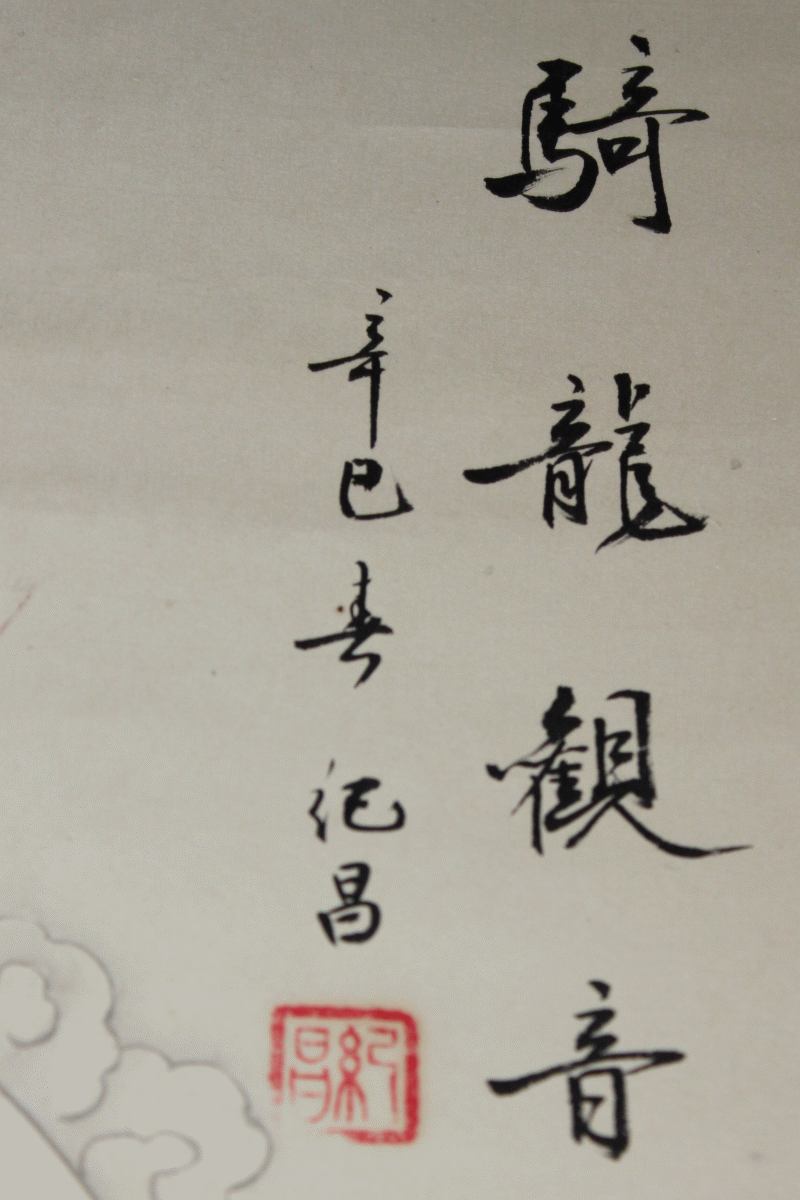 騎龍觀音
辛巳春 纪昌
紀昌